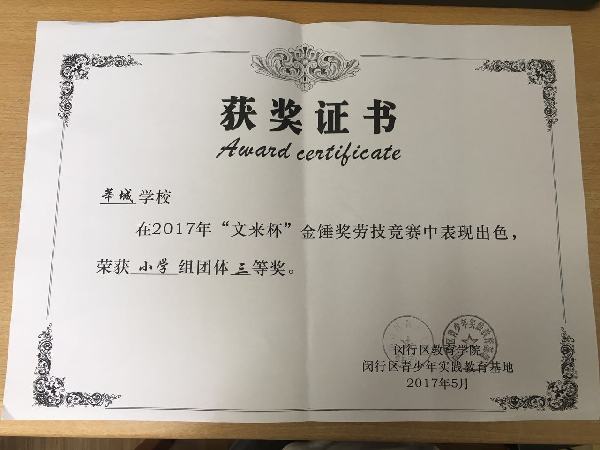 获奖证书
Award certificate
莘城学校
在2017年“文来杯”金锤奖劳技竞赛中表现出色，
荣获 小学 组团体 三 等奖。
闵行区教育学院
闵行区青少年实践教育基地
2017年5月